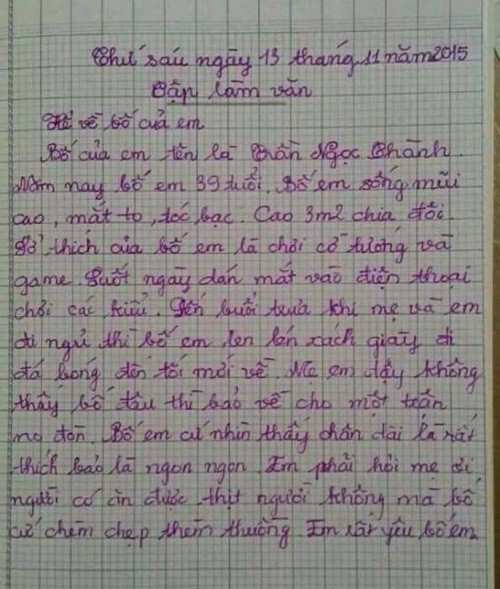 Thứ sáu ngày 13 tháng 11 năm 2015
Tập làm văn
về bố của em
Bố của em tên là Trần Ngọc Thành.
Năm nay bố em 39 tuổi. Bố em sống mũi
cao, mắt to, tóc bạc. Cao 3m2 chia đôi.
Sở thích của bố em là chơi cờ tướng và
game. Suốt ngày dán mắt vào điện thoại
chơi các kiểu. Đến buổi trưa khi mẹ và em
đi ngủ thì bố em len lén xách giày đi
đá bóng đến tối mới về. Mẹ em dậy không
thấy bố đâu thì bảo về cho một trận
no đòn. Bố em cứ nhìn thấy chân dài là rất
thích bảo là ngon ngon. Em phải hỏi mẹ ơi
người có ăn được thịt người không mà bố
cứ chẹm chẹp thèm thuồng. Em rất yêu bố em